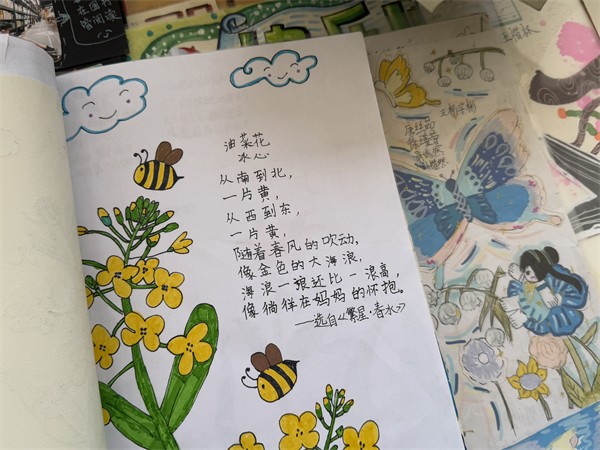 油菜花
冰心
从南到北，
一片黄，
从西到东，
一片黄，
随着春风的吹动，
像金色的大海浪，
海浪一浪还比一浪高，
像徜徉在妈妈的怀抱。
——选自《繁星·春水》